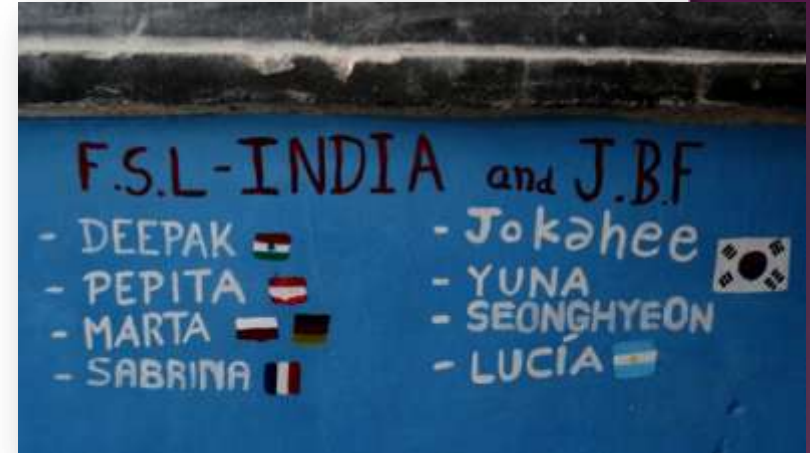 F.S.L-INDIA and J.B.F
- DEEPAK
- PEPITA
- MARTA
- SABRINA
- Jokahee
- YUNA
- SEONGHYEON
- LUCÍA